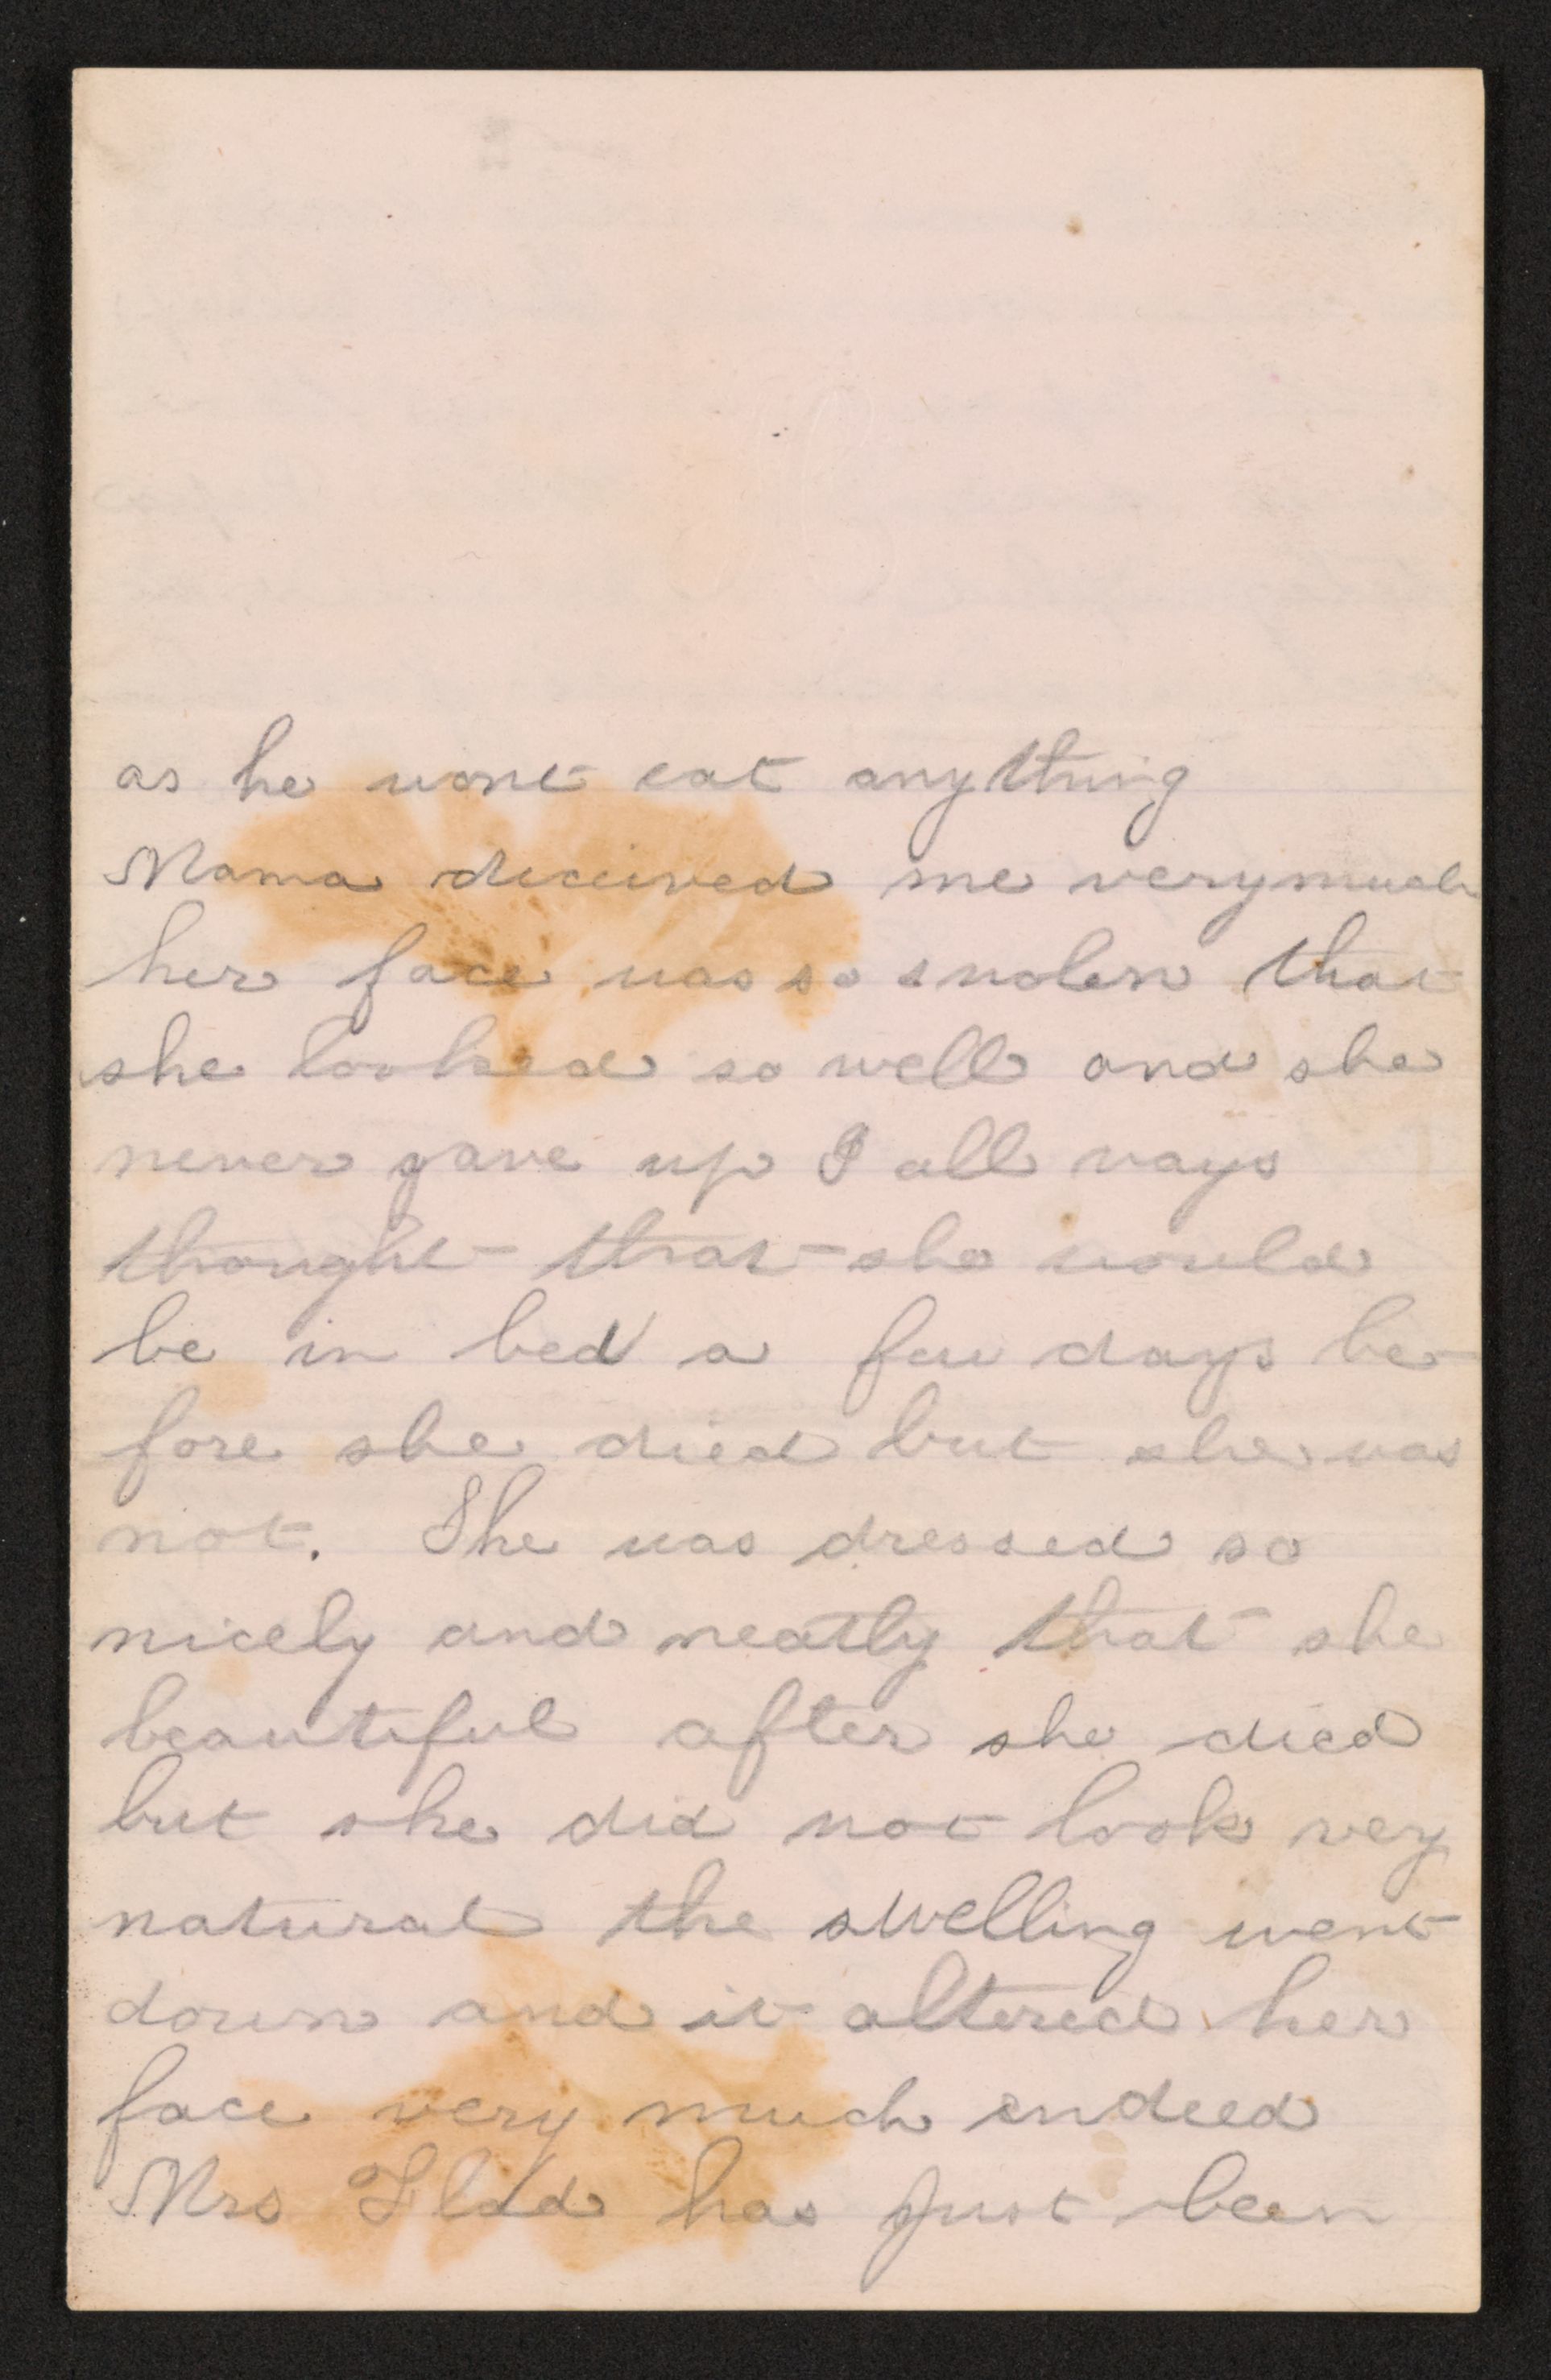 as he wont eat anything
Mama diceived me verymuch
her face was so swolen that
she looked so well and she
never gave up I all ways
thought that she would
be in bed a few days be-
fore she died but she was
not. She was dressed so
nicely and neatly that she
beautiful after she died
but she did not look very
natural the swelling went
down and it altered her
face very much indeed
Mrs has just been